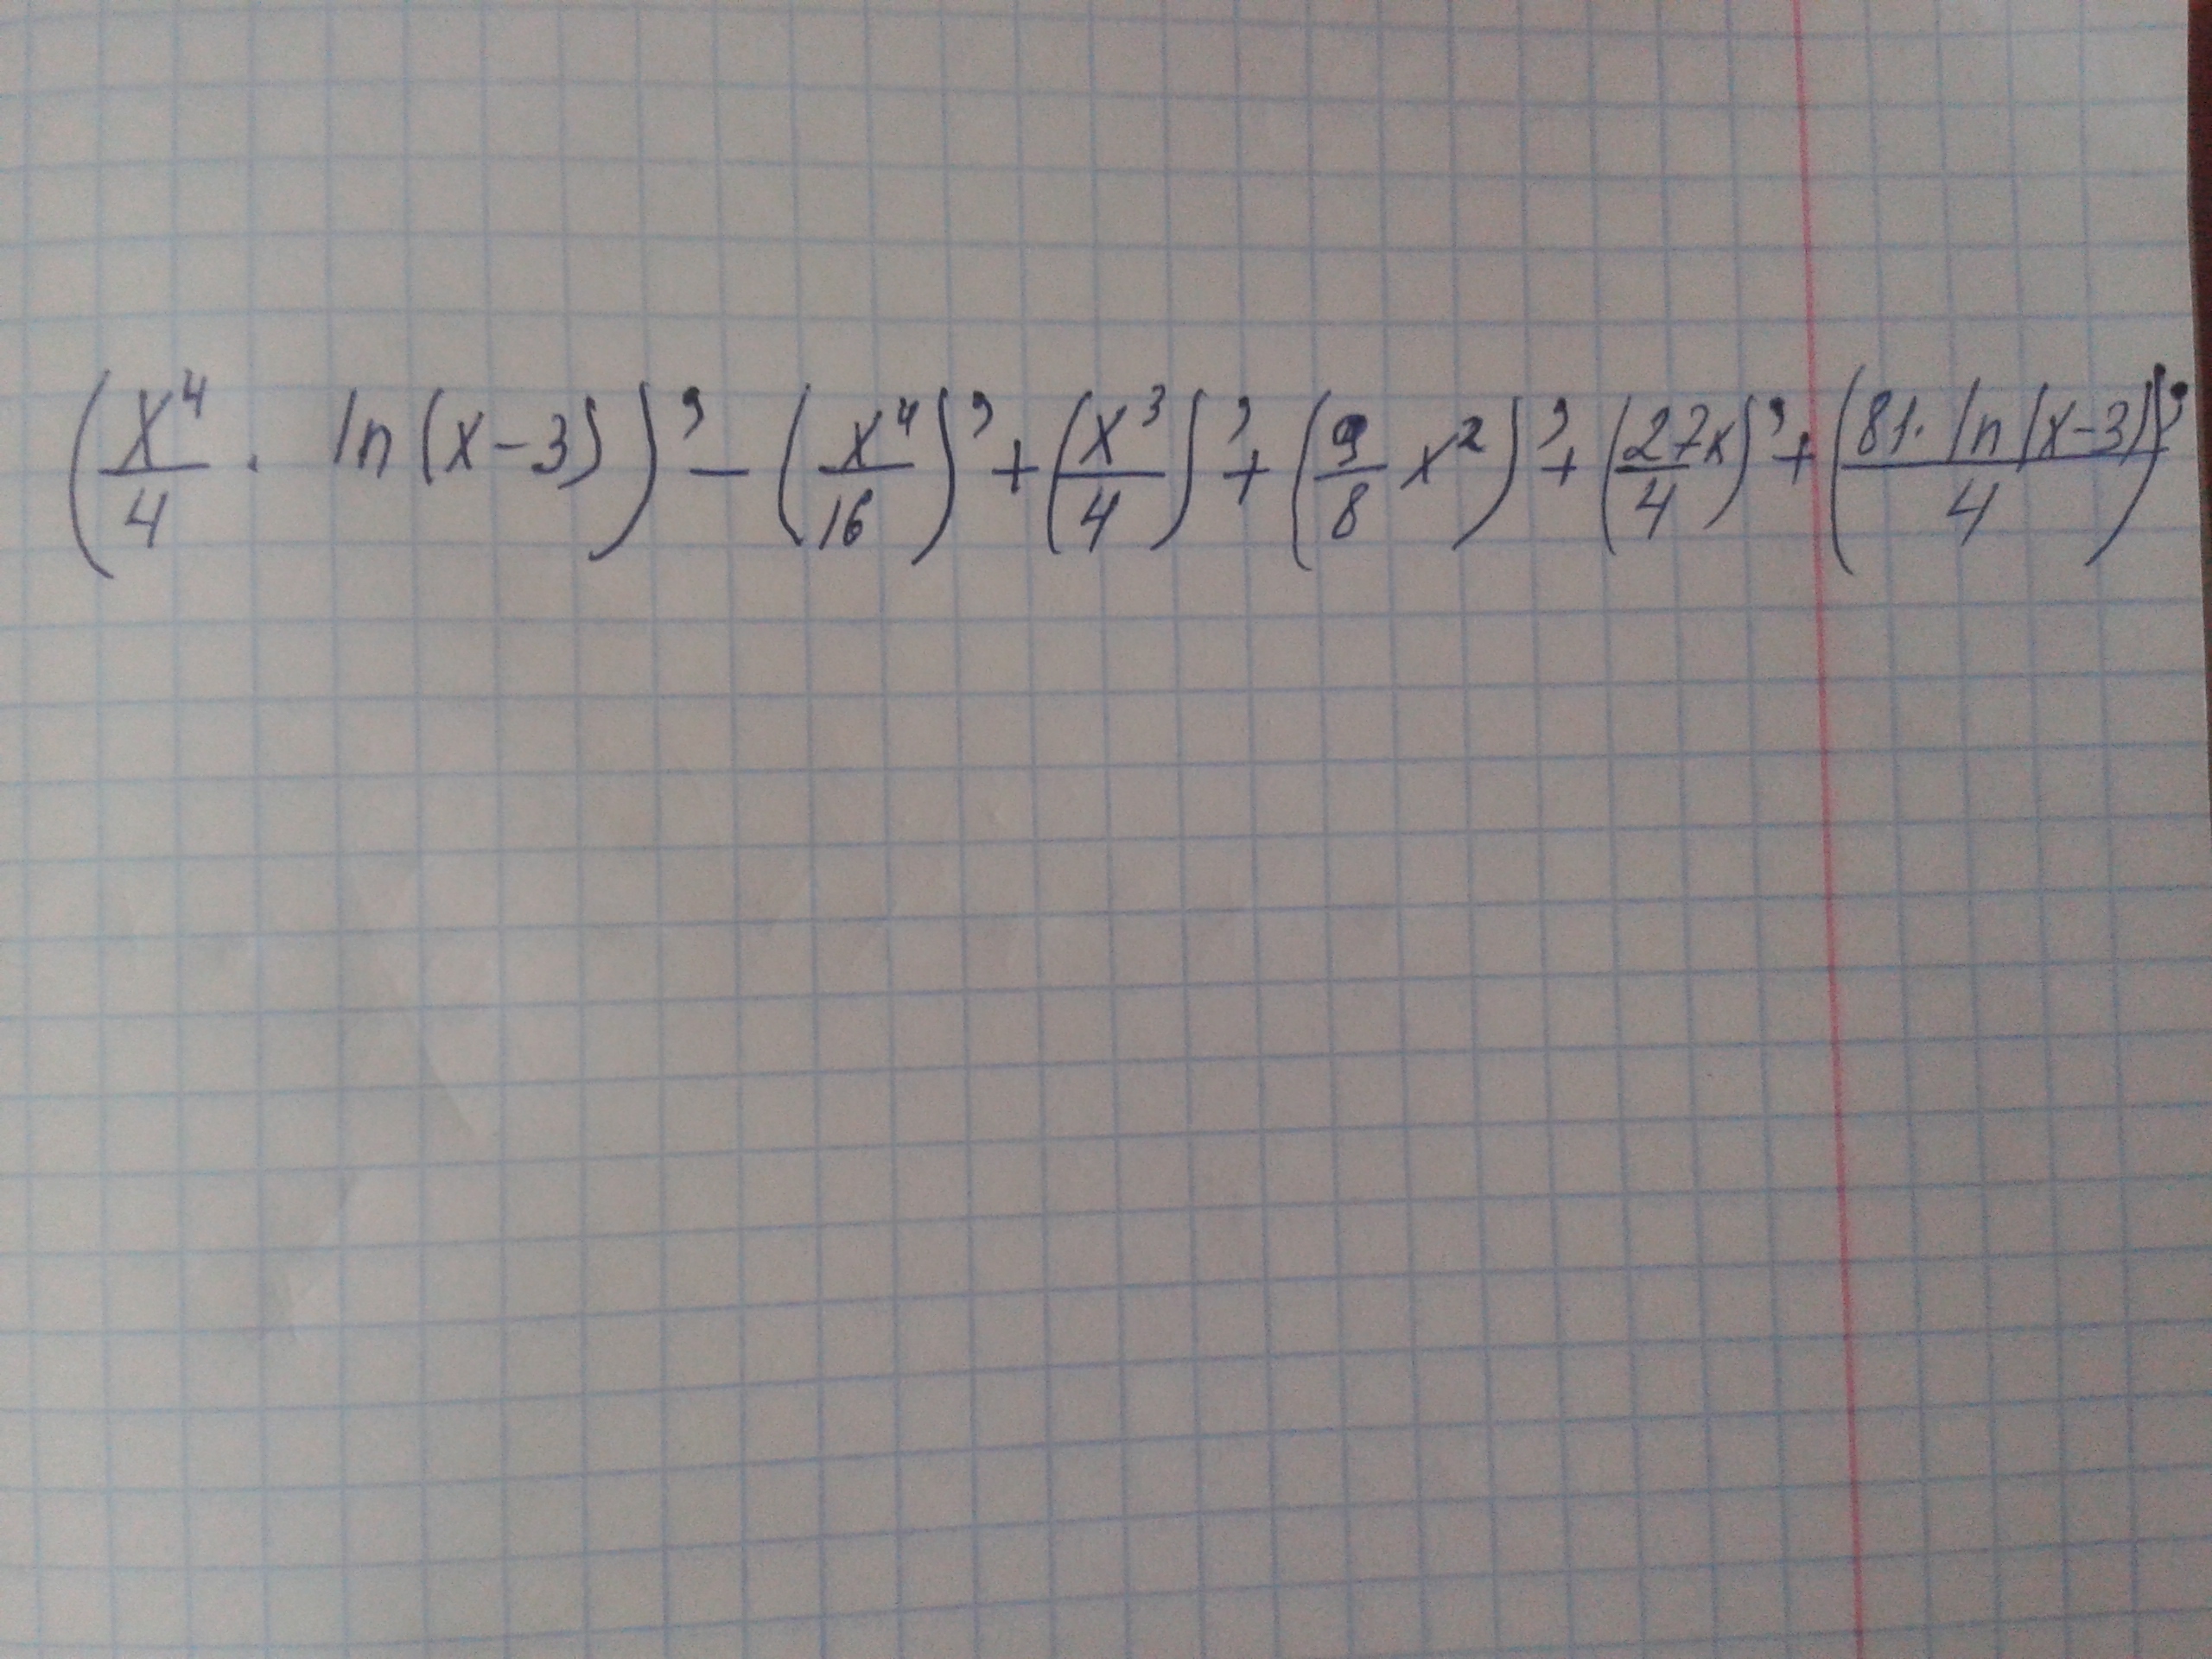 (x⁴/4 · ln(x-3))' - (x⁴/16)' + (x³/4)' + (9/8 x²)' + (27x/4)' + (81·ln|x-3|/4)'